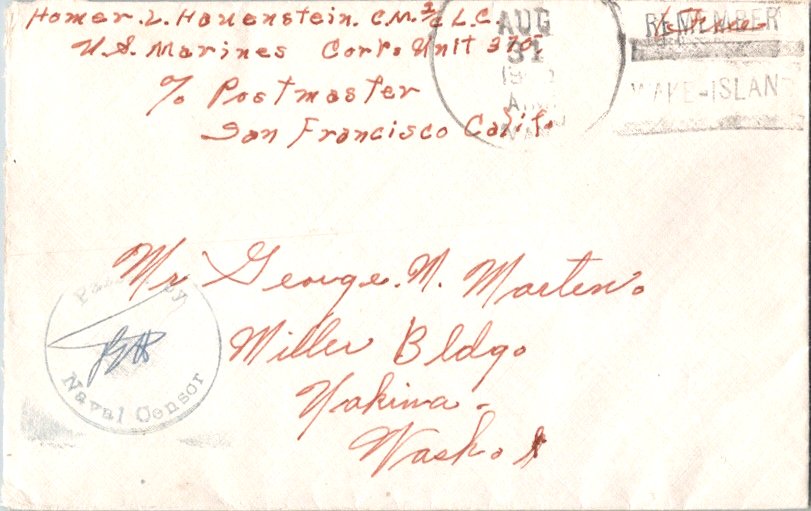 Homer. L. Hauenstein. C.M. 2/c L.C.
U.S. Marines Corp. Unit 370
c/o Postmaster
San Francisco Calif.
AUG
31
REMEMBER
WAKE-ISLAND
Mr George. M. Marten.
Miller Bldg.
Yakima.
Wash.
Passed by
Naval Censor